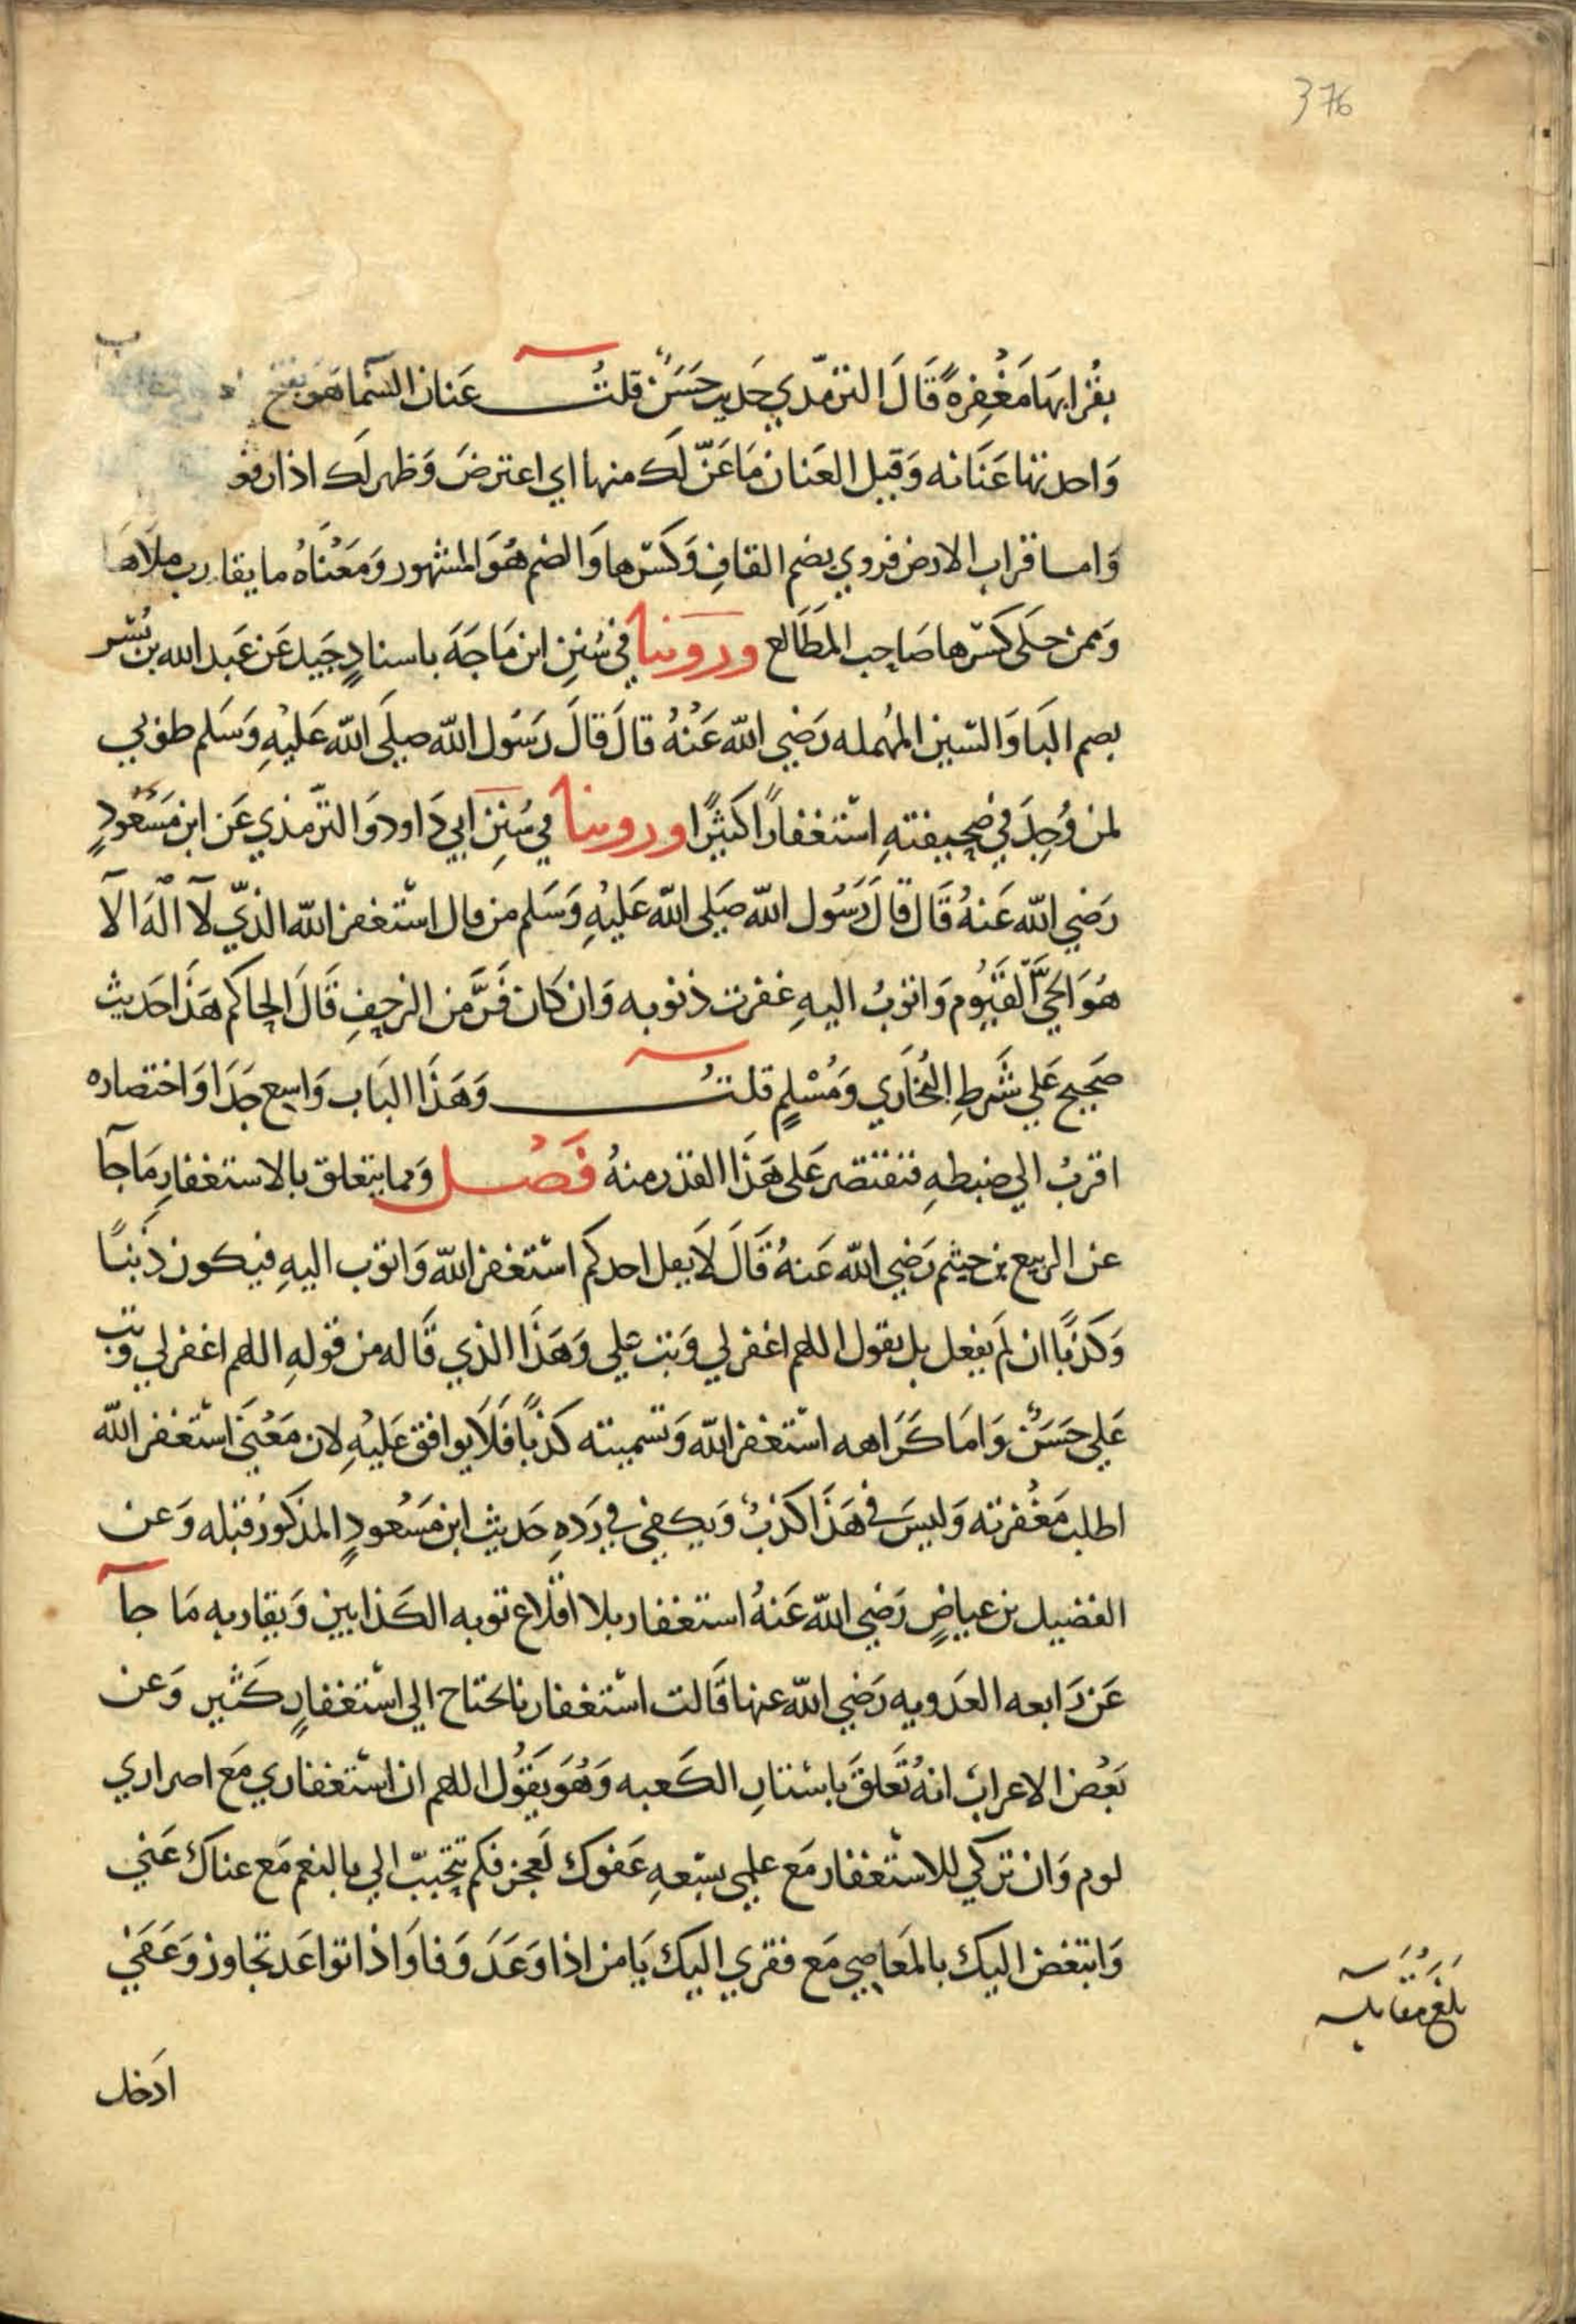 376
بقرابها مَغْفِرةً قَالَ الترمذي حَديث حَسَنٌ قلتُ عَنان السّما هَو بفتح
وَاحدتها عَنَانه وَقيل العَنان مَا عَنّ لَك منها اي اعترضَ وَظهر لَك اذا رفع
وَاما قراب الارض فروي بضم القافِ وَكسْرها وَالضم هُوَ المشهور وَمَعْناهُ ما يقارب ملأها
وَممن حكى كسْرها صَاحِب المَطَالع ورَوَينا في سُنِن ابن مَاجَهَ باسنادٍ جَيد عَن عَبد الله بن بُسْر
بضم البَا وَالسّين المهُمله رَضِي الله عَنْهُ قالَ قالَ رَسُول الله صلَى الله عَليْهِ وَسَلم طوبي
لمن وُجِدَ في صَحِيفتهِ اسْتغفارًا كثيرًا وروينا في سُنِن ابي دَاود وَالترّمذي عَن ابن مَسْعُودٍ
رَضِي الله عَنهُ قَال قالَ رَسُول الله صَلى الله عَليْهِ وَسَلم من قال اسْتغفر الله الذيّ لآ الهَ الآ
هُوَ الحَيَّ القَيُّوم وَاتوبُ اليهِ غفرت ذنوبه وَان كان فَرَّ من الزحِفِ قَالَ الحِاكم هَذَا حَديث
صَحِيح عَلي شَرطِ البُخاَري وَمُسْلمٍ قلتُ وَهَذَا البَاب وَاسِع جَدَا وَاختصاره
اقربُ الي ضبطهِ فنقتصر عَلى هَذَا القدر منهُ فَصْل وَمما يتعلق بالاستغفارِ مَا جآ
عن الربيع بن خيثم رَضِي الله عَنهُ قَالَ لاَ يقل احدكم اسْتغفر الله وَاتوب اليهِ فيكون ذَنبًا
وَكذبًا ان لَم يفعل بل يقول اللهم اغفر لي وَتب علي وَهَذَا الذي قَاله من قولهِ اللهم اغفر لي وتب
عَلي حَسَنٌ وَامَا كَرَاهه اسْتغفر الله وَتسميته كذبًا فَلاَ يوافق عَليْهِ لان مَعْنَي اسْتغفر الله
اطلب مَغْفرته وَليسَ في هَذَا كذبٌ وَيكفي في رَدهِ حَديث ابن مَسْعُودٍ المذكور قبله وَعن
الفضيل بن عياضٍ رَضِي الله عَنهُ استغفار بلا اقلاع توبه الكَذابين وَيقاربه مَا جآ
عَن رَابعه العَدويه رَضِي الله عنها قَالت اسْتغفارنا يحتاج الي اسْتغفارٍ كثير وَعن
بَعْض الاعراب انهُ تَعَلقَ باسْتارِ الكَعبه وَهُوَ يَقوُل اللهم ان اسْتغفاري مَع اصراري
لوم وَان تركي للاسْتغفار مَع علمِي بسِعهِ عَفوك لَعجز فكم تتحَببّ الي بالنعم مَع غناك عَني
وَاتبغض اليك بالمَعاصِي مَع فقري اليك يَا من اذا وَعَدَ وَفا وَاذا تواعَد تجاوز وَعَفَي
بلغ مقابله
ادَخل